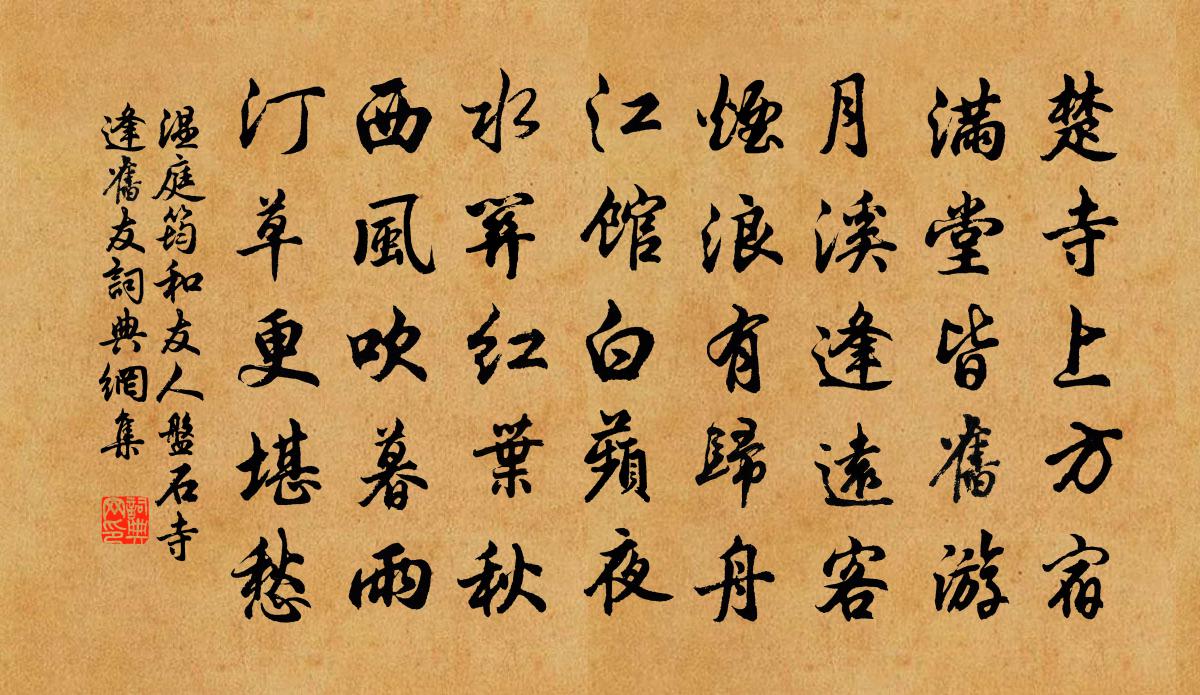 楚寺上方宿
滿堂皆舊游
月溪逢遠客
煙浪有歸舟
江館白蘋夜
水關紅葉秋
西風吹暮雨
汀草更堪愁
溫庭筠和友人盤石寺
逢舊友詞典網集
詞典
网印